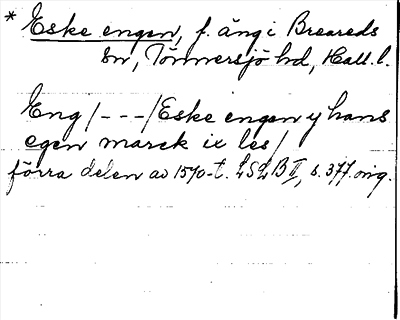 * Eske engen, f. äng i Breareds
sn, Tönnersjö hd, Hall. l.
Eng /---/ Eske engen y hans
egen marck ix les /
förra delen av 1570-t. LSLB II, s. 377. orig.